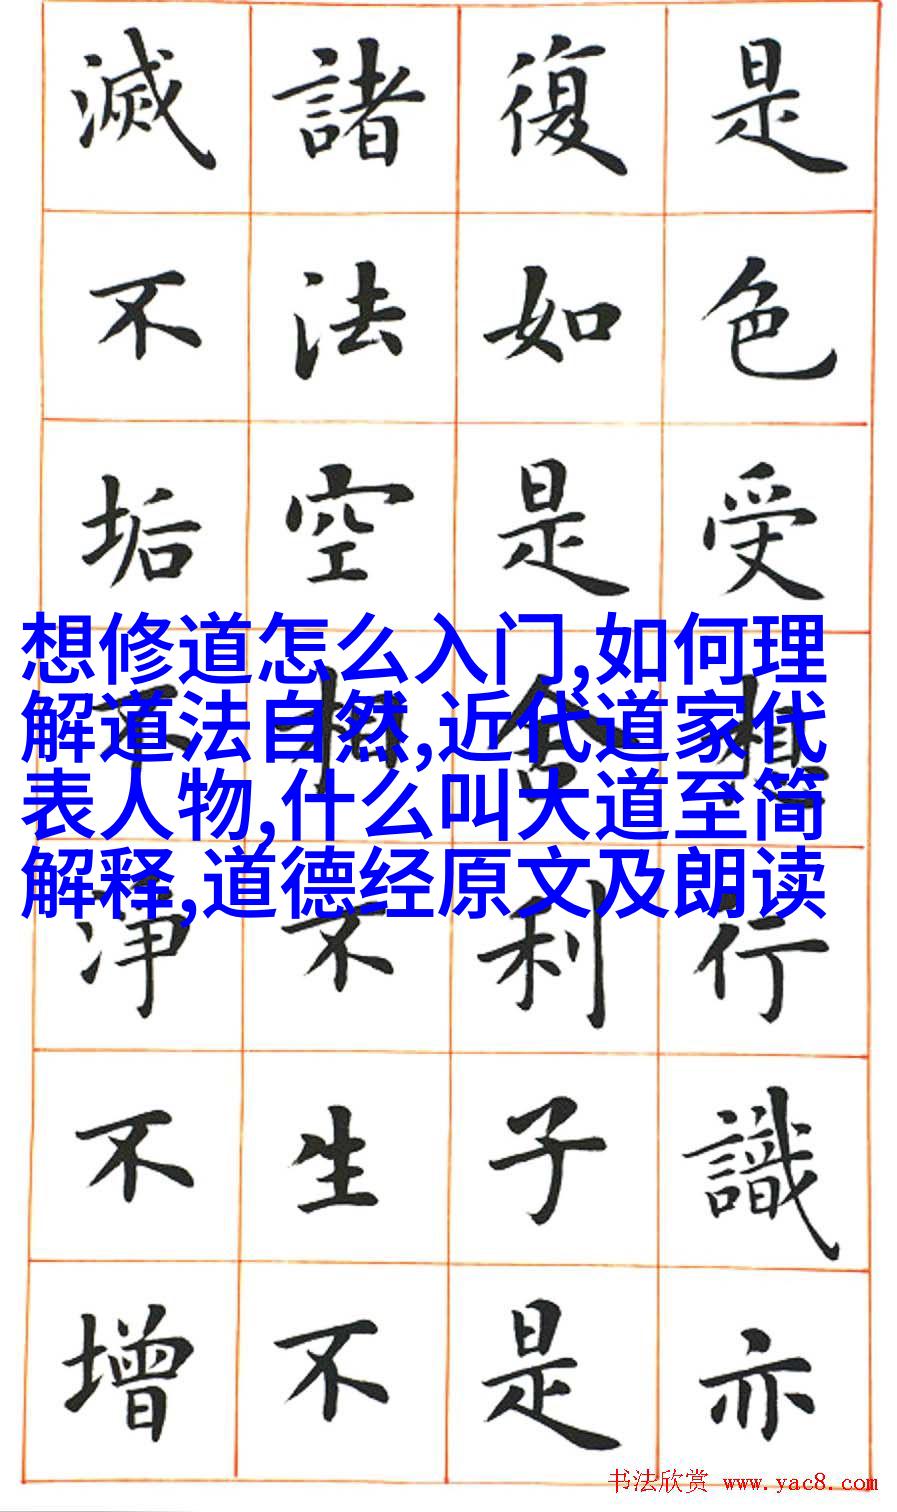 是色受想行識亦
復如是舍利子是
諸法空相不生不
滅不垢不淨不增
想修道怎么入门,如何理
解道法自然,近代道家代
表人物,什么叫大道至简
解释,道德经原文及朗读
书法欣赏 www.yac8.com